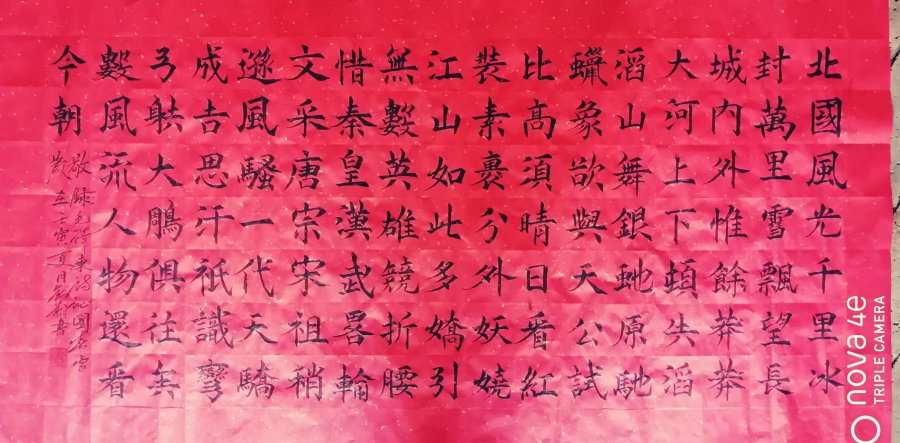 北國風光千里冰
封萬里雪飄望長
城内外惟餘莽莽
大河上下頓失滔
滔山舞銀虵原馳
蠟象欲與天公試
比高須晴日看紅
裝素裹分外妖嬈
江山如此多嬌引
無數英雄競折腰
惜秦皇漢武畧輸
文采唐宗宋祖稍
遜風騷一代天驕
成吉思汗祇識彎
弓射大鵰俱往矣
數風流人物還看
今朝
敬録毛澤東詩沁園春雪
歲在壬寅夏月
nova 4e
TRIPLE CAMERA